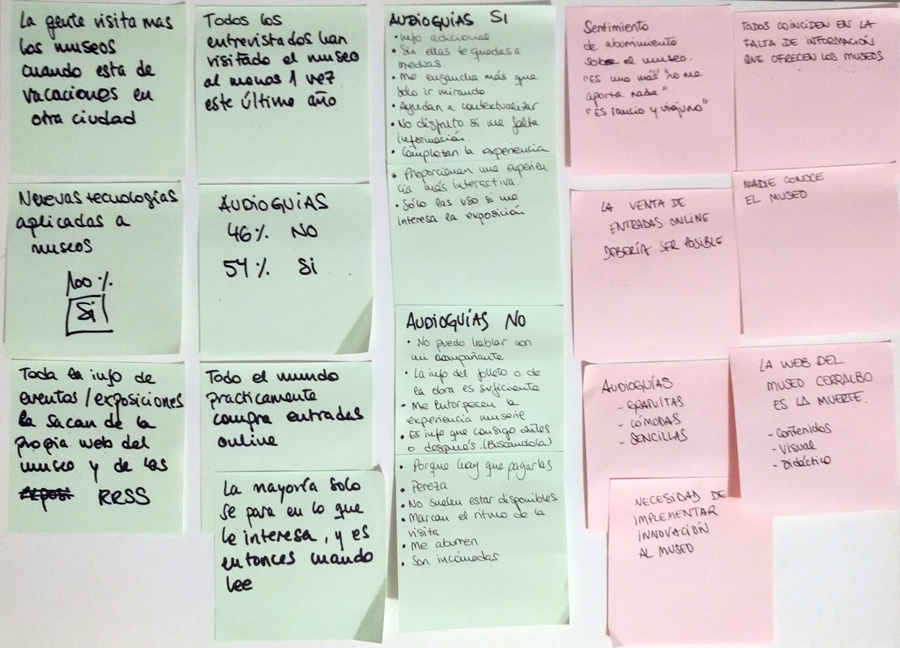 La gente visita mas
los museos
cuando esta de
vacaciones en
otra ciudad
Todos los
entrevistados han
visitado el museo
al menos 1 vez
este último año
AUDIOGUÍAS SI
• Info adicional
• Sin ellas te quedas a
medias.
• Me engancha más que
solo ir mirando
• Ayudan a contextualizar
• No disfruto si me falta
información.
• Completan la experiencia
• Proporcionan una experien
cia más interactiva.
• Sólo las uso si me
interesa la exposición
Sentimiento
de aburrimiento
sobre el museo.
"Es uno más" "no me
aporta nada"
"Es rancio y viejuno"
TODOS COINCIDEN EN LA
FALTA DE INFORMACIÓN
QUE OFRECEN LOS MUSEOS
Nuevas tecnologías
aplicadas a
museos
100%
Si
AUDIOGUIAS
46% NO
54% Si
LA VENTA DE
ENTRADAS ONLINE
DEBERÍA SER POSIBLE
NADIE CONOCE
EL MUSEO
AUDIOGUÍAS NO
• No puedo hablar con
mi acompañante
• La info del folleto o de
la obra es suficiente
• Me entorpecen la
experiencia
• Es info que consigo antes
o después. (Buscándola)
• Porque hay que pagarlas
• Pereza
• No suelen estar disponibles
• Marcan el ritmo de la
visita
• Me aburren
• Son incómodas
Toda la info de
eventos/exposiciones
la sacan de la
propia web del
museo y de las
RRSS
Todo el mundo
practicamente
compra entradas
online
La mayoría solo
se para en lo que
le interesa, y es
entonces cuando
lee
AUDIOGUÍAS
- GRATUITAS
- CÓMODAS
- SENCILLAS
LA WEB DEL
MUSEO CERRALBO
ES LA MUERTE.
- Contenidos
- Visual
- Didáctico
NECESIDAD DE
IMPLEMENTAR
INNOVACIÓN
AL MUSEO